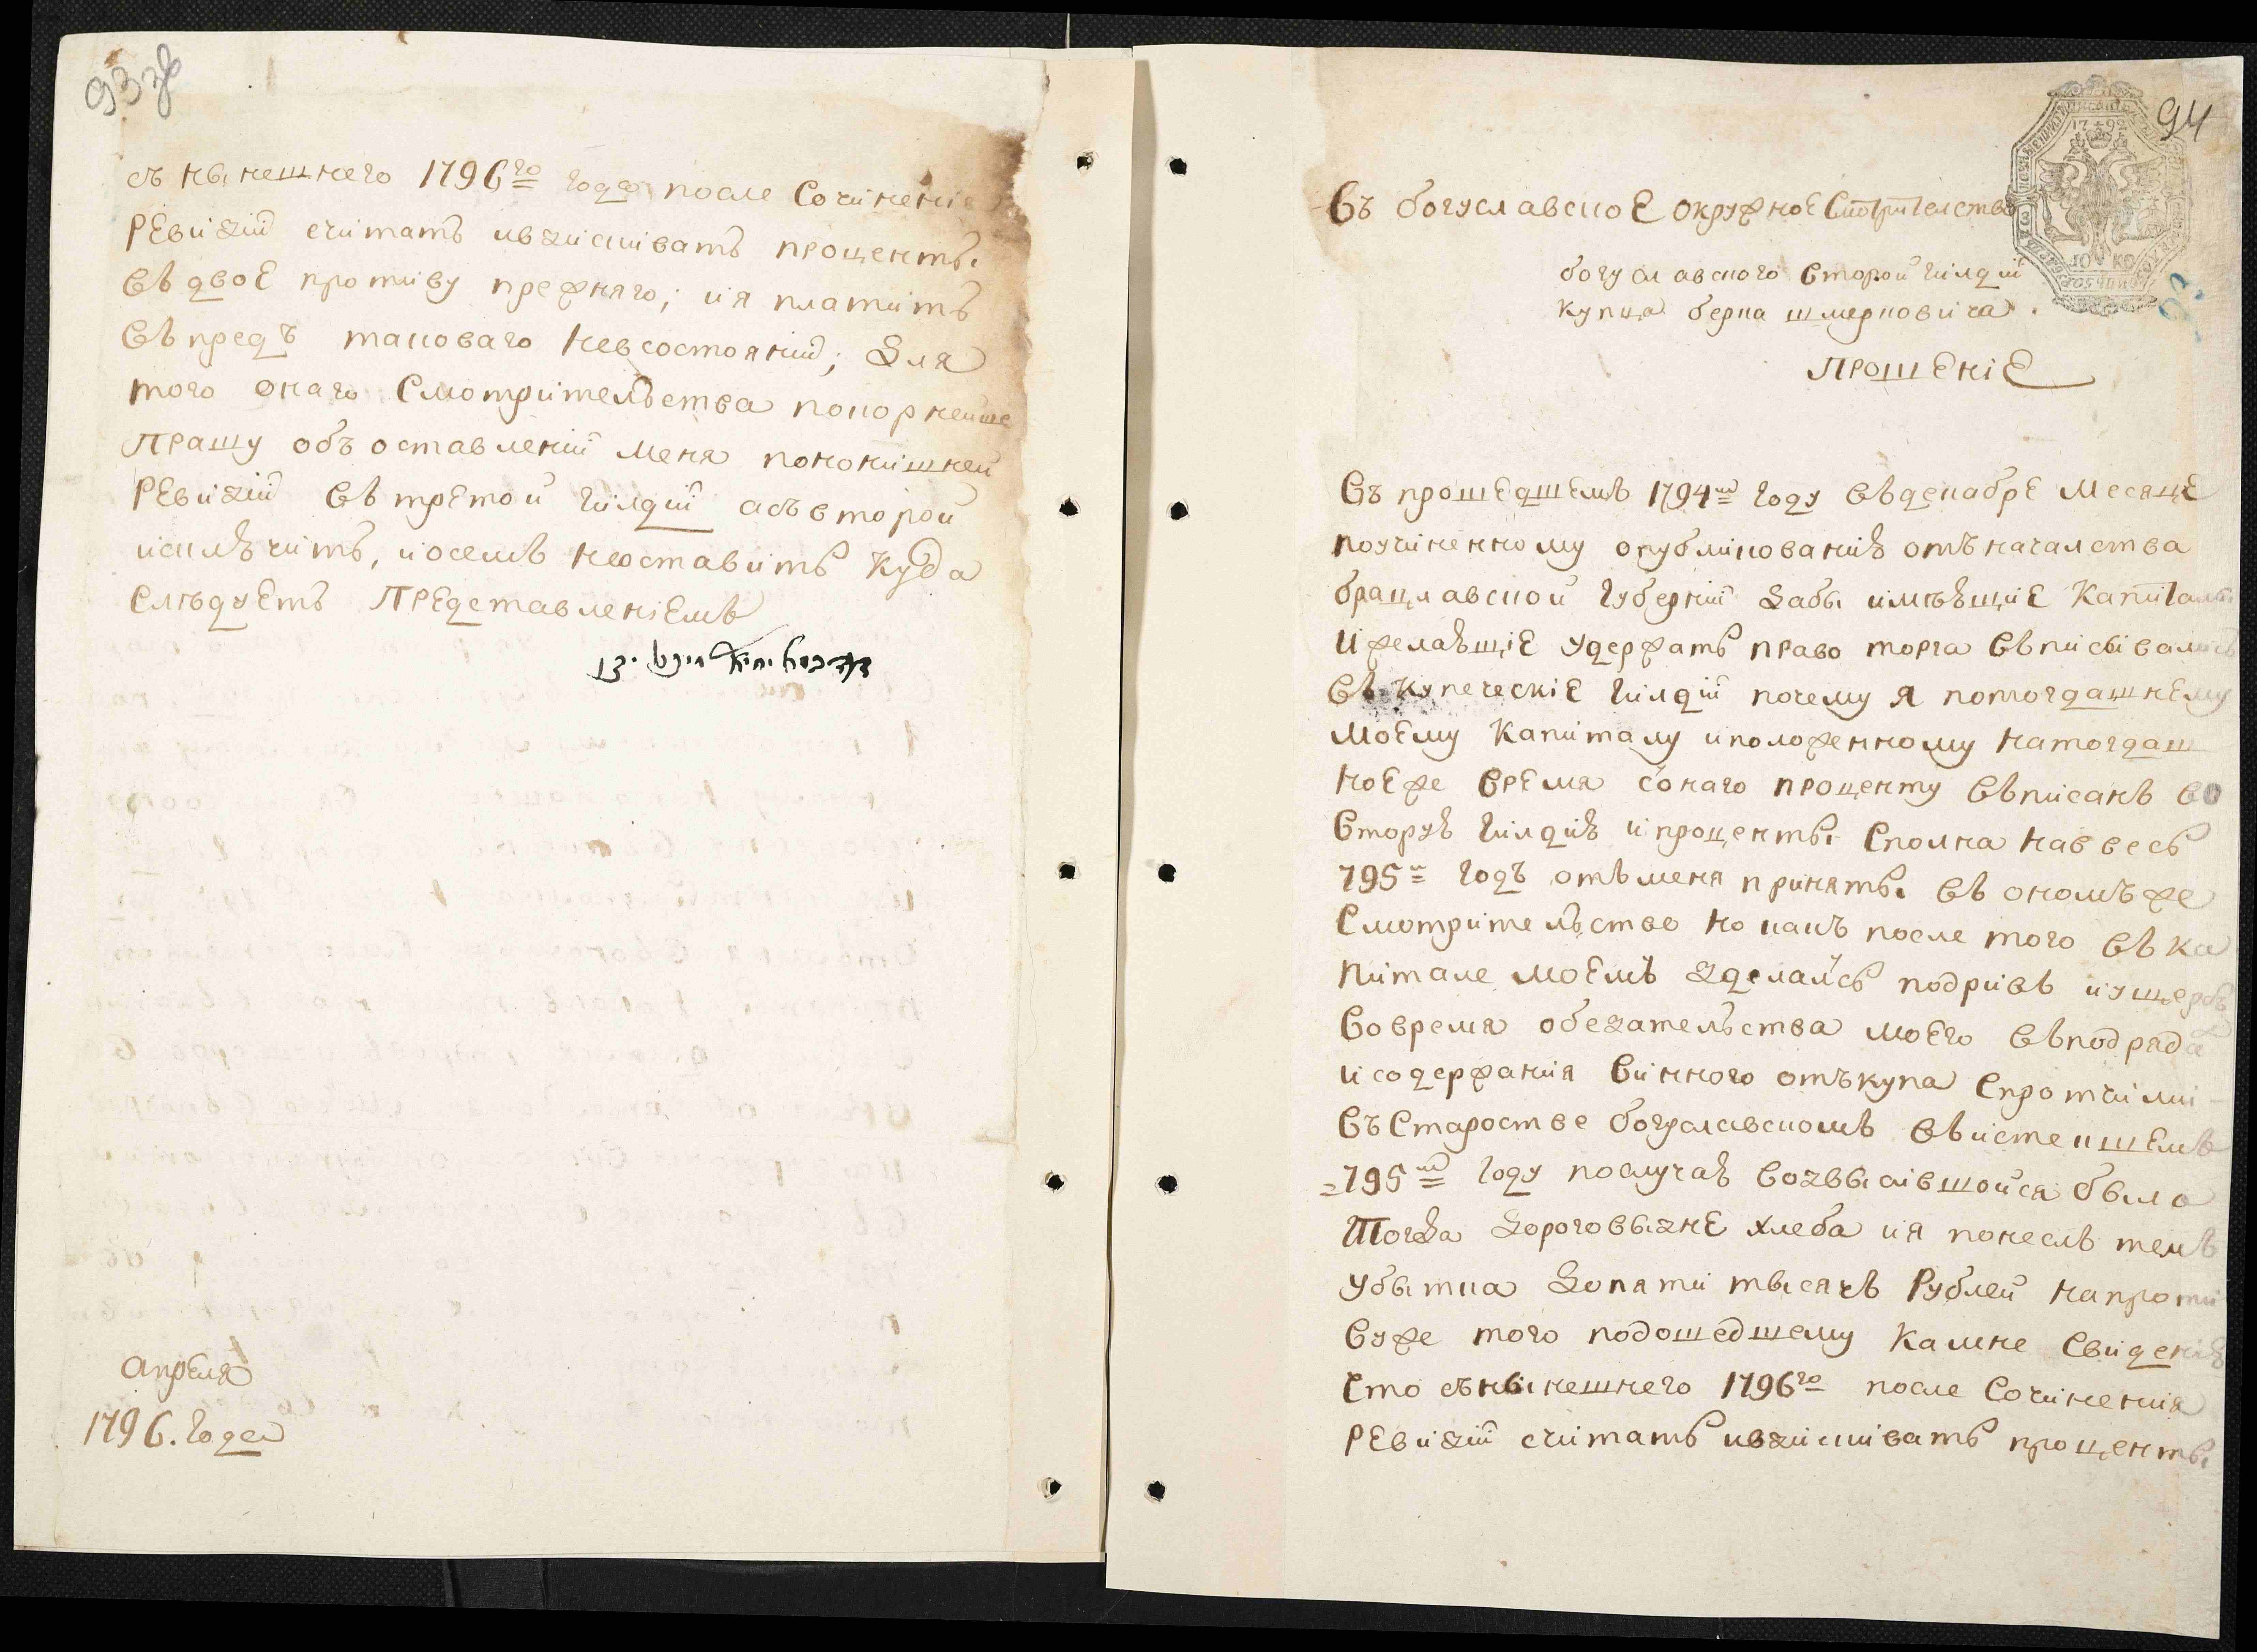 93 зв
съ нынешнего 1796го года после Сочинения
РЕвизіи считать ивзискивать проценты
въ двоЕ противу прежняго; ия платить
въпредъ таковаго невсостояніи; Для
того онаго Смотрительства покорнейше
Прашу объ оставленіи меня понон​ишней
РЕвизіи въ трЕтой Гилдіи асъ второй
исключить, иосемъ неоставить куда
слѣдуЕтъ ПРЕдставленіЕмъ
апреля
1796. Года
94
1792
Въ богуславскоЕ ОкружноЕ Смотрителство
богуславского второй гилдіи
купца берка шмерковича.
ПРОШЕНІЕ
Въ прошЕдшЕмъ 1794м Году въдекабрЕ МесяцЕ
поучиненному опубликованию отъ началства
брацлавской Губерніи Дабы имѣющиЕ Капиталы
и желающіЕ удержать право торга въписывались
въ КупеческіЕ Гилдіи почему Я потогдашнЕму
моЕму Капиталу иположенному натогдаш
ноЕже врЕмя сонаго проценту въписанъ во
вторую Гилдию ипроценты Сполна наввесь
795й Годъ отъменя приняты въ ономъже
Смотрительстве но какъ после того въ Ка
питале моЕмъ зделался подривъ иущербъ
вовремя обезательства моЕго въподряде
исодержания винного отъкупа спротчими
въ Старостве богуславскомъ въистекшЕмъ
795м Году послучаю возвысившойся была
Тогда дороговызнЕ хлеба ия понеслъ темъ
убытка допяти тысячъ Рублей напроти
вуже того подошедшему Камне Сведению
Что сънынешнего 1796го после Сочинения
РЕвизіи считать ивзискивать проценты